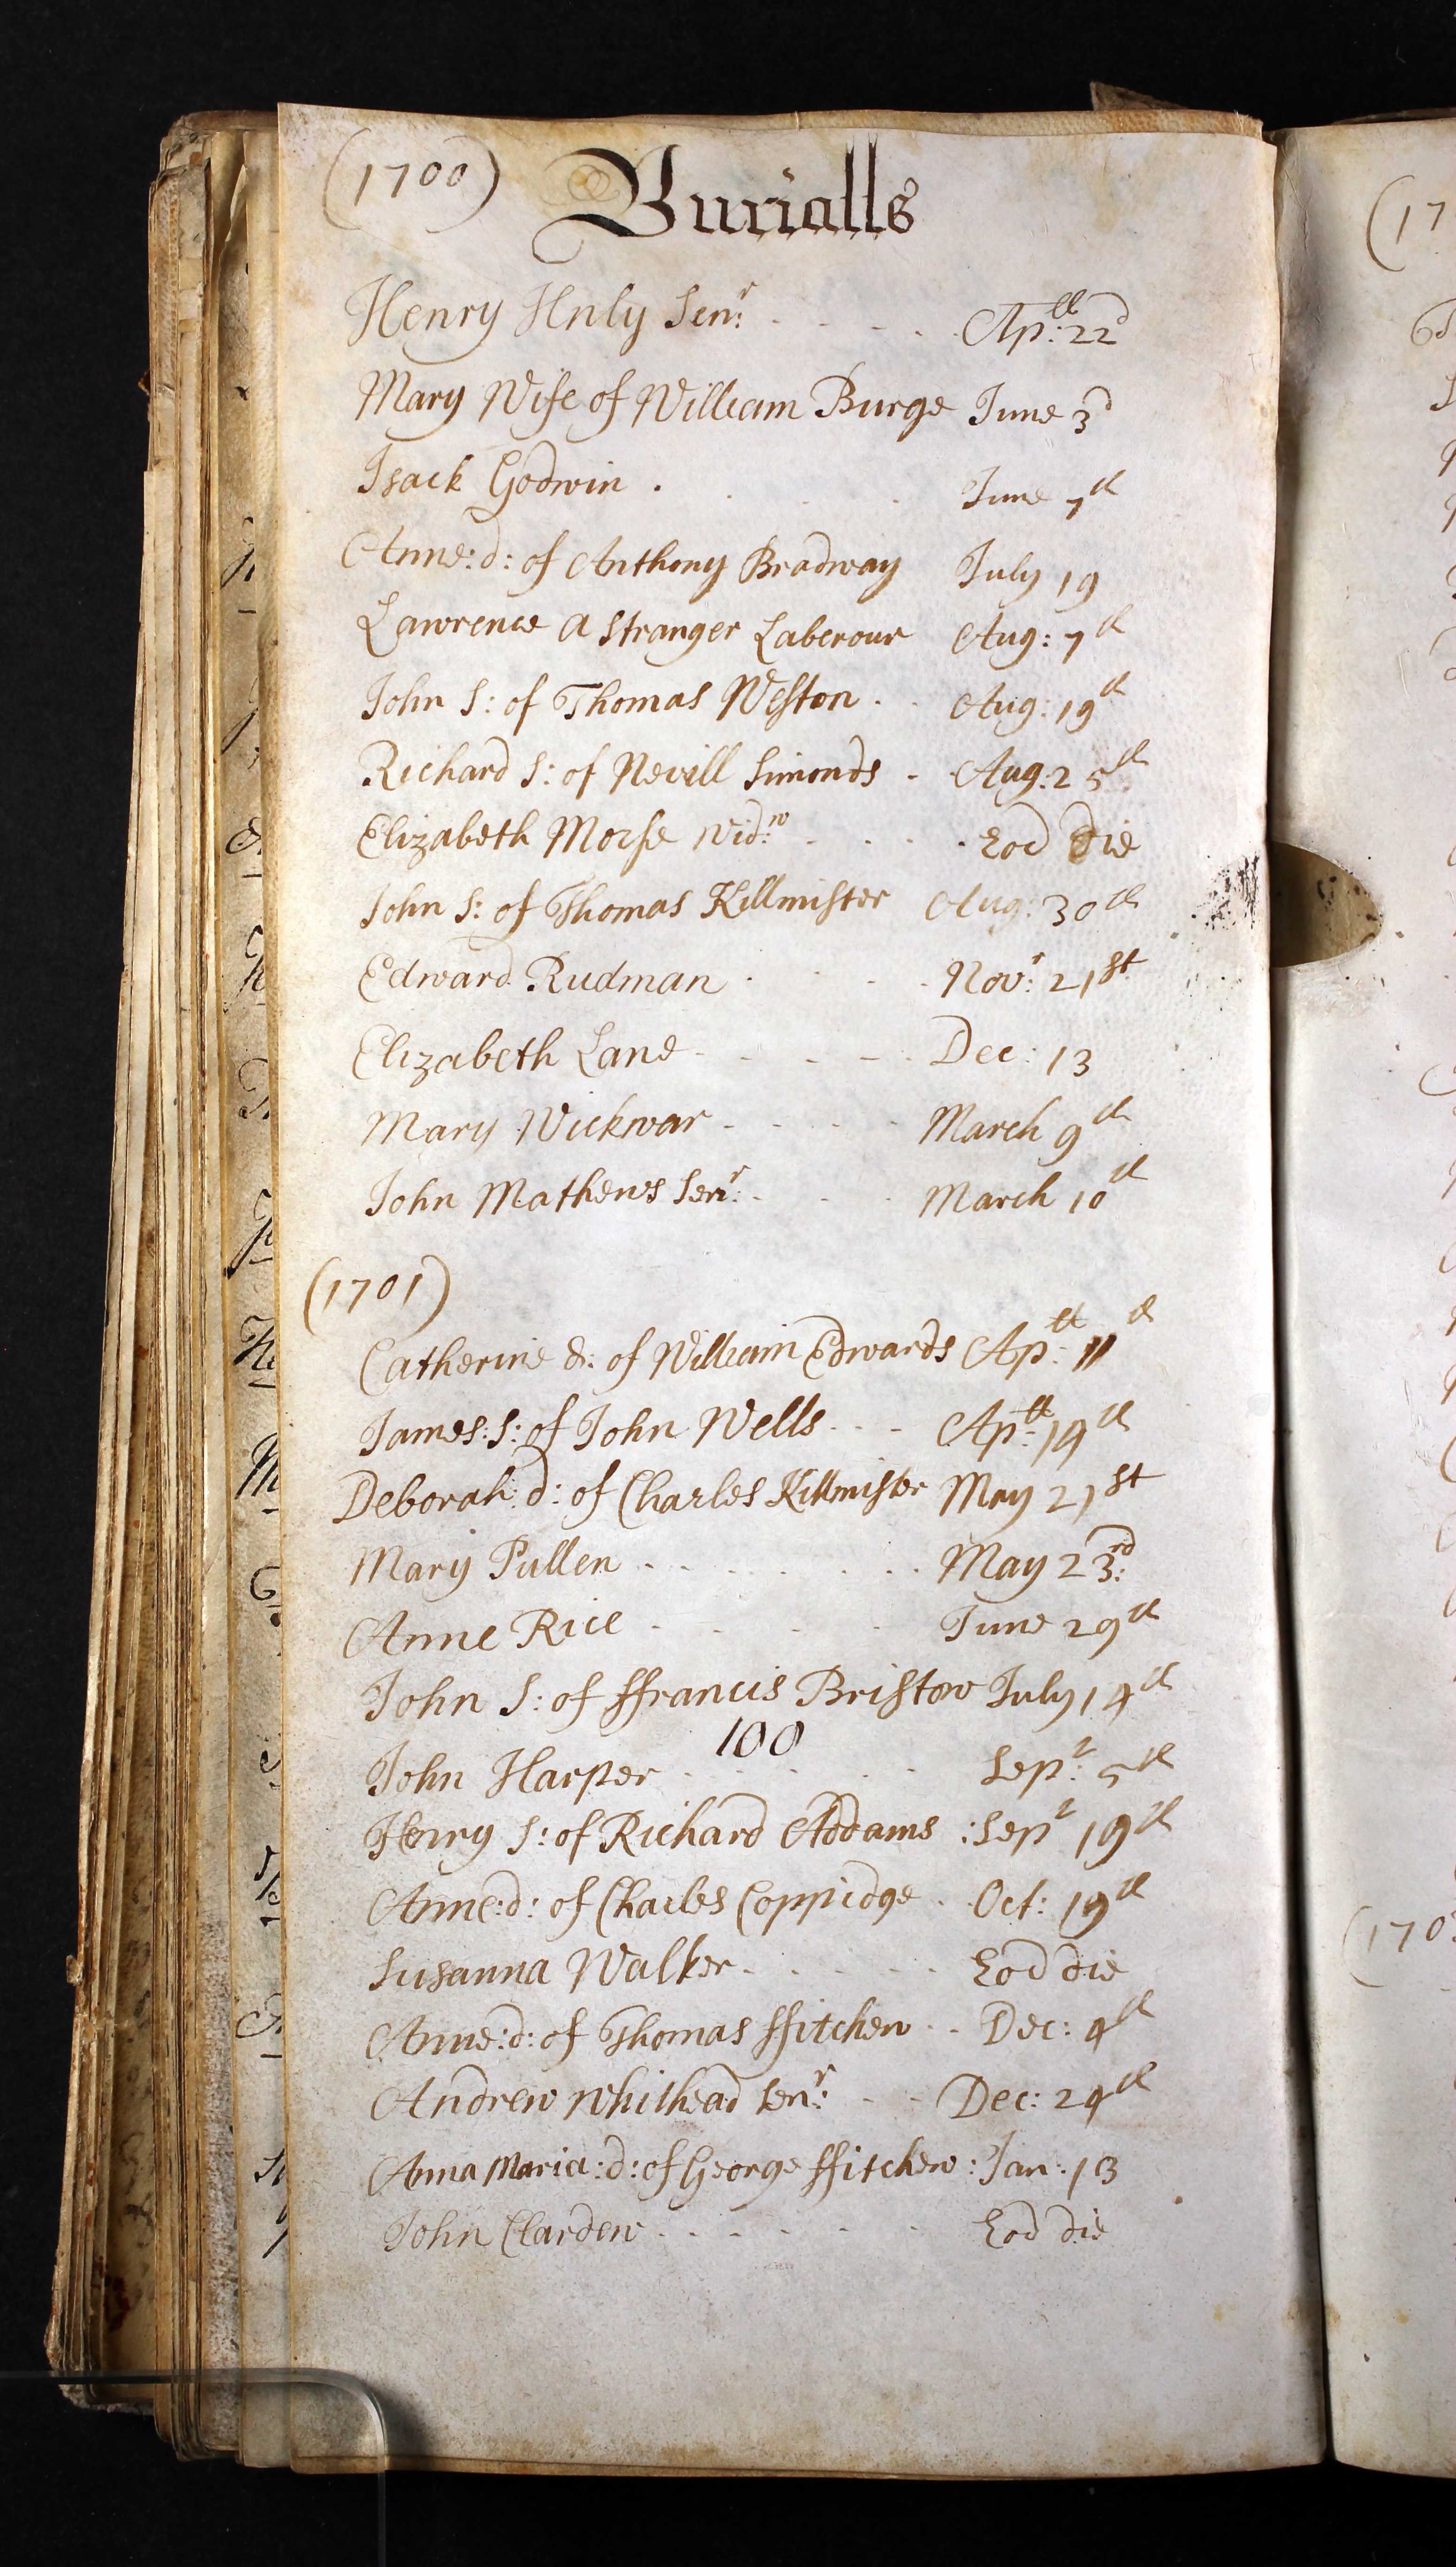 (1700) Burialls
Henry Hnly Senr: Apll: 22d
Mary Wife of William Burge June 3d
Isack Godwin June 7th
Anne: d: of Anthony Bradway July 19
Lawrence a Stranger Laberour Aug: 7th
John S: of Thomas Weston Aug: 19th
Richard S: of Nevill Simonds Aug: 25th
Elizabeth Morse Widw: Eod Die
John S: of Thomas Killmister Aug: 30th
Edward Rudman Novr: 21st
Elizabeth Lane Dec: 13
Mary Wickwar March 9th
John Mathews Senr: March 10th
(1701)
Catherine d: of William Edwards Apll: 11th
James: S: of John Wells Apll: 19th
Deborah: d: of Charles Killmister May 21st
Mary Pullen May 23rd:
Anne Rice June 29th
John S: of ffrancis Bristow July 14th
100
John Harper Sept: 5th
Henry S: of Richard Addams : Sept 19th
Anne: d: of Charles Coppidge Oct: 19th
Susanna Walker Eod die
Anne: d: of Thomas ffitchew Dec: 4th
Andrew Whithead Senr: Dec: 24th
Anna Maria: d: of George ffitchew: Jan: 13
John Clarden Eod die